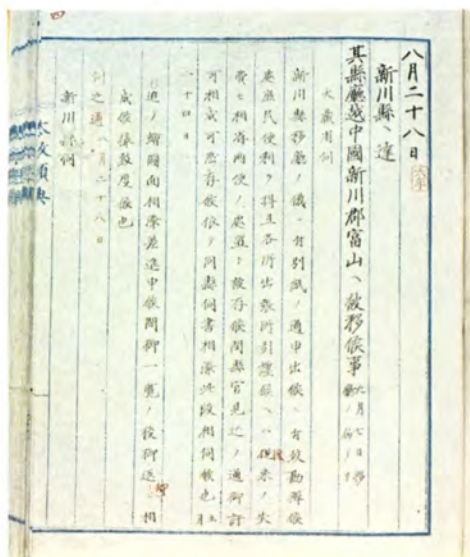 八月二十八日
新川縣ヘ達
其縣廳越中國新川郡富山ヘ被移候事
九月七日
大藏省伺
新川縣移廳ノ儀ニ付別紙ノ通申出候ニ付致勘辨候
處庶民便利ヲ得且各所出張所引 候ヘハ従来ノ失
費モ相省両便ノ處置ト被存候間縣官見込ノ通御許
可相成可然存候依テ同縣伺書相添此段相伺候也
二十四日
追テ繪圖面相添差進申候間御一覧ノ後御返 相
成候様致度候也
伺之通 八月二十八日
新川縣伺
太政類典